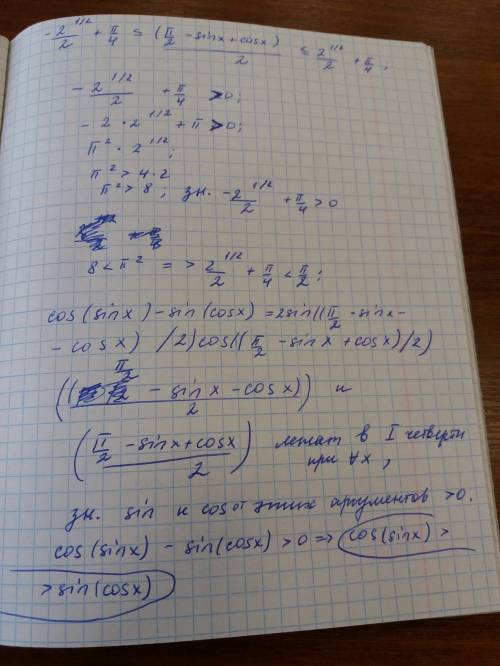 -2^{1/2}/2 + π/4 ≤ (π/2 - sinx + cosx)/2 ≤ 2^{1/2}/2 + π/4;
-2^{1/2}/2 + π/4 > 0;
-2·2^{1/2} + π > 0;
π² · 2^{1/2};
π² > 4·2
π² > 8; зн. -2^{1/2}/2 + π/4 > 0
8 < π² => 2^{1/2}/2 + π/4 < π/2;
cos(sinx) - sin(cosx) = 2sin((π/2 - sinx -
- cosx) /2)cos((π/2 - sinx + cosx)/2)
((π/2 - sinx - cosx)/2) и
(π/2 - sinx + cosx/2) лежат в I четверти
при ∀x,
зн. sin и cos от этих аргументов >0.
cos(sinx) - sin(cosx) > 0 => cos(sinx) >
> sin(cosx)